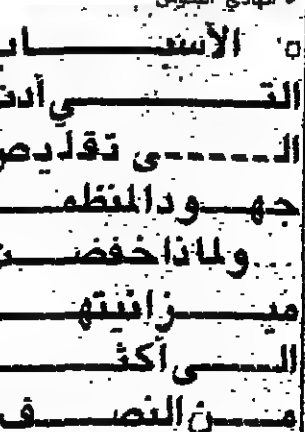 الأسباب
التي أدت
الى تقليص
جهود المنظمة
..ولماذا خفضت
ميزانيتها
الى أكثر
من النصف